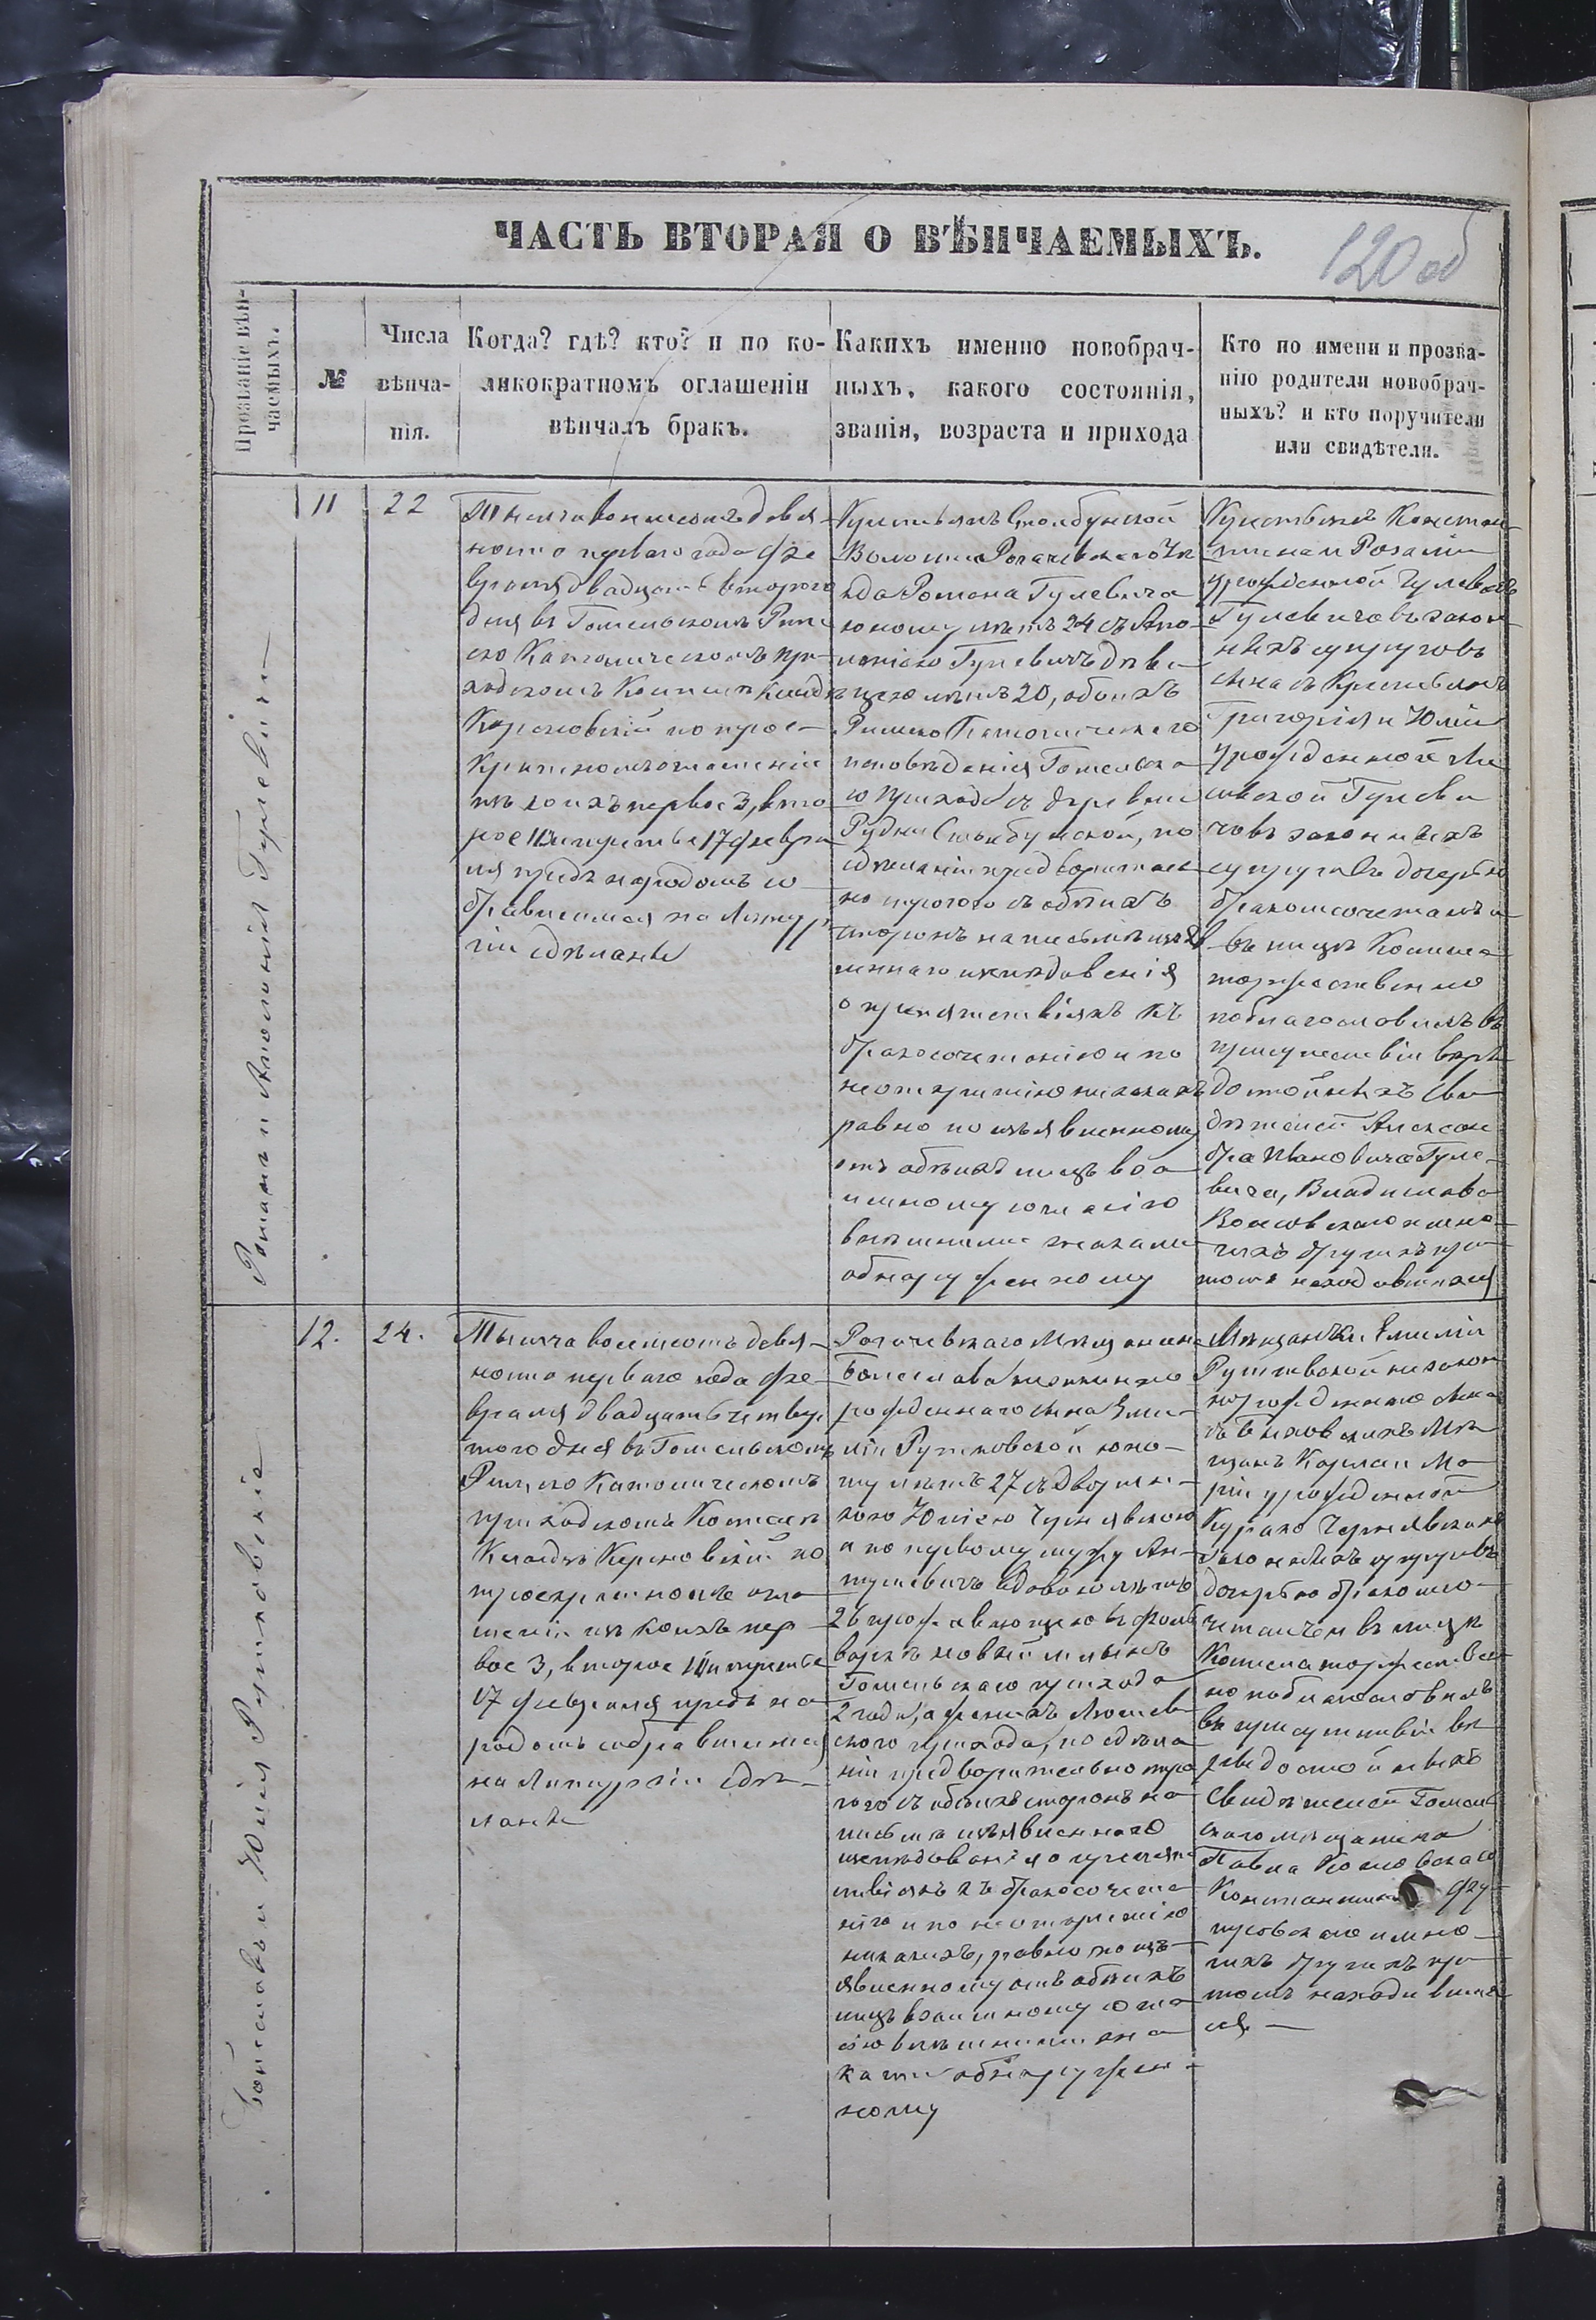 ЧАСТЬ ВТОРАЯ О ВѢНЧАЕМЫХЪ.
120 об
Прозваніе вѣн-
чаемыхъ.
№
Числа
вѣнча-
нія.
Когда? гдѣ? кто? и по ко-
ликократномъ оглашеніи
вѣнчалъ бракъ.
Какихъ именно новобрач-
ныхъ, какого состоянія,
званія, возраста и прихода
Кто по имени и прозва-
нію родители новобрач-
ныхъ? и кто поручители
или свидѣтели.
Романъ и Аполонія Гулевичи
11
22
Тысяча восемсотъ девя-
носто перваго года фе
враля двадцать второго
дня въ Гомельскомъ Рим
ско Католическомъ при-
ходскомъ Костелѣ Ксендзъ
по трое-
кратномъ оглашеніи
изъ коихъ первое 3, вто
рое 10 и третье 17 февра
ля предъ народомъ со
бравшимся на Литур
гіи сдѣланы
Крестьянъ Столбунской
Волости Рогачевскаго Уѣ
зда Романа Гулевича
юношу лѣтъ 24 съ Апо-
лоніею Гулевичъ дѣви
цею лѣтъ 20, обоихъ
Римско Католическаго
исповѣданія Гомельска
го прихода съ деревни
Рудни Столбунской, по
сдѣланіи предварительн
но строгого съ обѣихъ
сторонъ на письмѣ изъяв
леннаго изслѣдованія
о препятствіяхъ къ
бракосочетанію и по
неоткрытію никакихъ
равно по изъявленному
отъ обѣихъ лицъ вза
имному согласію
внѣшними знаками
обнаруженному
Крестьянъ Констан-
тина и Розаліи
урожденной
Гулевичовъ закон
ныхъ супруговъ
сына съ Крестьянъ
Григорія и Юліи
урожденной
Гулеви
човъ законныхъ
супруговъ дочерью
бракомъ сочеталъ и
въ лицѣ Костела
торжественно
поблагословилъ въ
присутствіи вѣро
достойныхъ сви
дѣтелей Алексан
дра Ивановича Гуле-
вича, Владислава
и мно-
гихъ другихъ при
томъ находившихся
Болеславъ и Юлія Рутковскіе
12.
24.
Тысяча восемсотъ девя-
носто перваго года фе-
враля двадцать четвер
того дня въ Гомельскомъ
Римско Католическомъ
приходскомъ Костелѣ
Ксендзъ по
троекратномъ огла
шеніи изъ коихъ пер
вое 3, второе 10 и третье
17 февраля предъ на
родомъ собравшимся
на Литургіи сдѣ-
ланы
Рогачевскаго Мѣщанина
Болеслава незаконно
рожденнаго сына Эми-
ліи Рутковской юно-
шу лѣтъ 27 съ дворян-
кою Юліею Чернявскою
а по первому мужу Ан-
вдовою лѣтъ
26 проживающею въ фоль
варкѣ новый млынъ
Гомельскаго прихода
2 года, а женихъ
скаго прихода, по сдѣла
ніи предварительно стро
гого съ обѣихъ сторонъ на
письмѣ изъявленнаго
изслѣдованія о препят
ствіяхъ къ бракосочета
нію и по неоткрытію
никакихъ, равно по изъ
явленному отъ обѣихъ
лицъ взаимному согла
сію внѣшними зна
ками обнаружен-
ному
Мѣщанки Эмиліи
Рутковской незакон
но рожденнаго сына
съ Мѣ
щанъ Карла и Ма
ріи урожденной
Чернявскихъ
законныхъ супруговъ
дочерью бракомъ со-
четалъ и въ лицѣ
Костела торжествен
но поблагословилъ
въ присутствіи вѣ
родостойныхъ
свидѣтелей Гомель
скаго мѣщанина
Павла Козловскаго
Константина
и мно-
гихъ другихъ при
томъ находивших
ся —